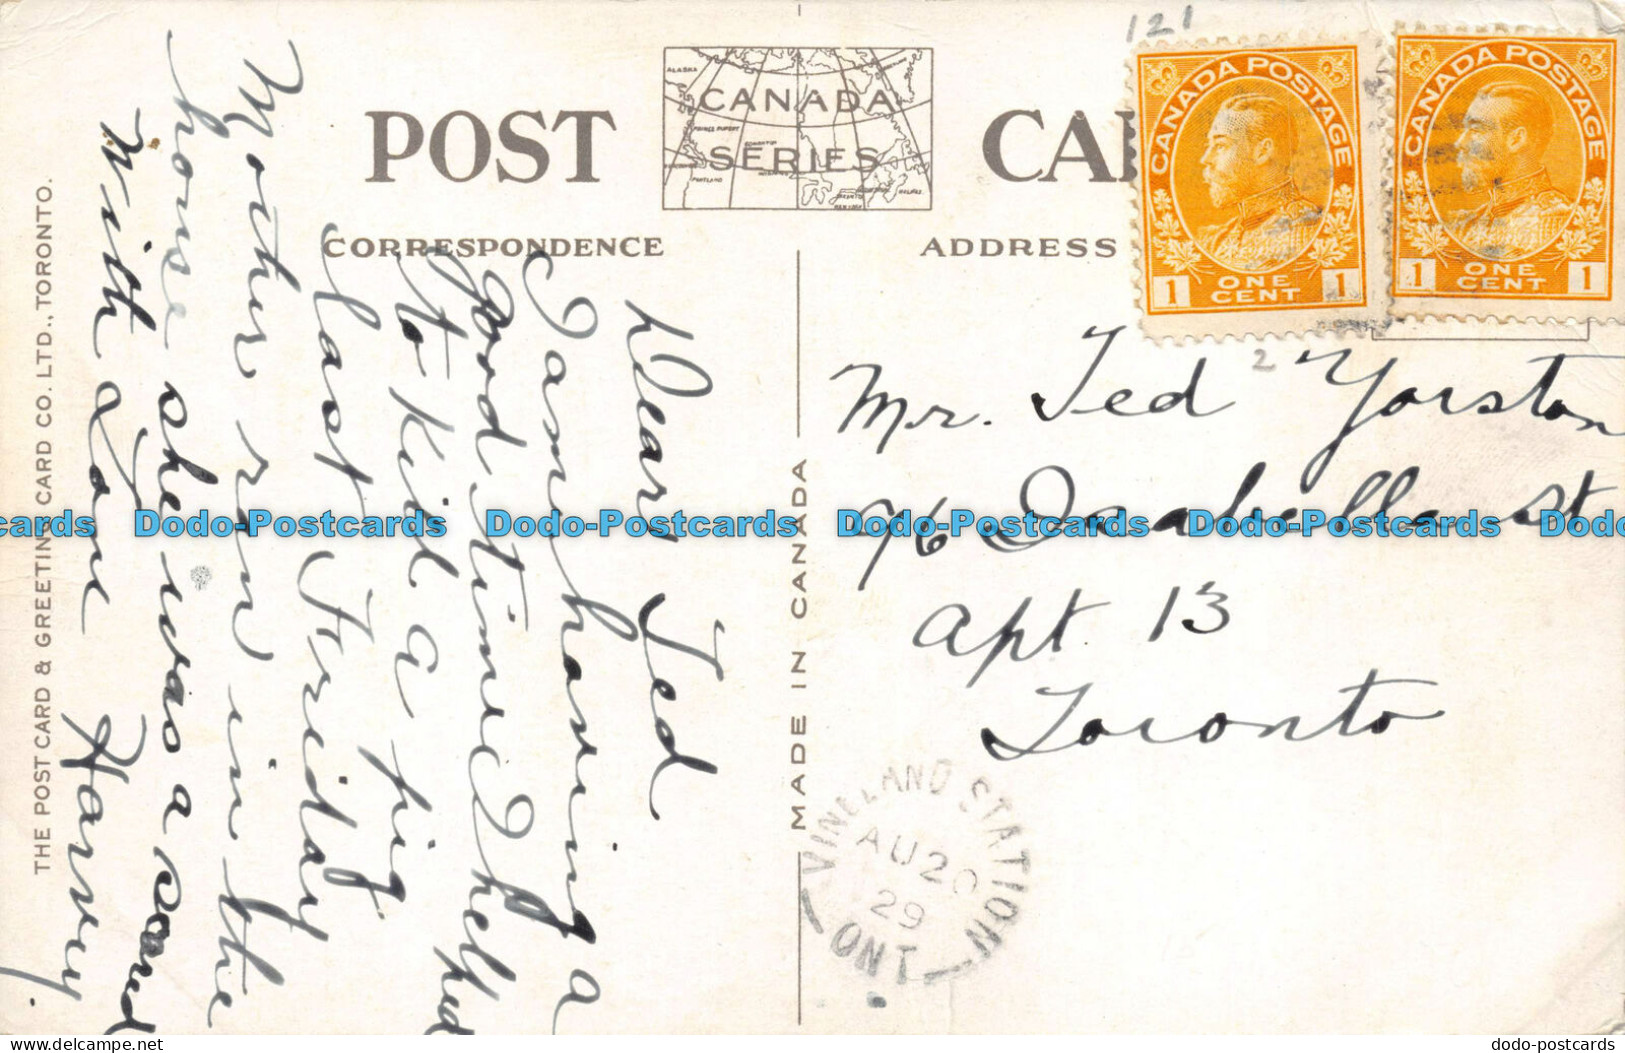 121
POST CA
CANADA
SERIES
ALASKA
PRINCE RUPERT
EDMONTON
PORTLAND
TORONTO
NEW YORK
HALIFAX
CORRESPONDENCE
ADDRESS
CANADA POSTAGE
1 ONE CENT 1
CANADA POSTAGE
1 ONE CENT 1
2
Dear Ted
I am having a
good time I helped
to kill a pig
last Friday
Mother ran in the
house she was a scared
With Love Harvey.
Mr. Ted Yorston
96 Isabella St
Apt. 13
Toronto
VINELAND STATION
AU 20
29
ONT
MADE IN CANADA
THE POST CARD & GREETING CARD CO. LTD., TORONTO.
cards Dodo-Postcards Dodo-Postcards Dodo-Postcards Dodo-Postcards Dodo
www.delcampe.net
dodo-postcards